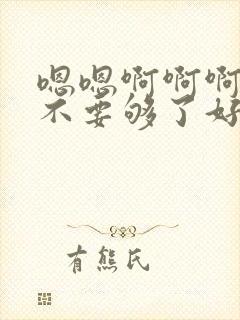 嗯嗯啊啊啊
不要够了好
有熊氏